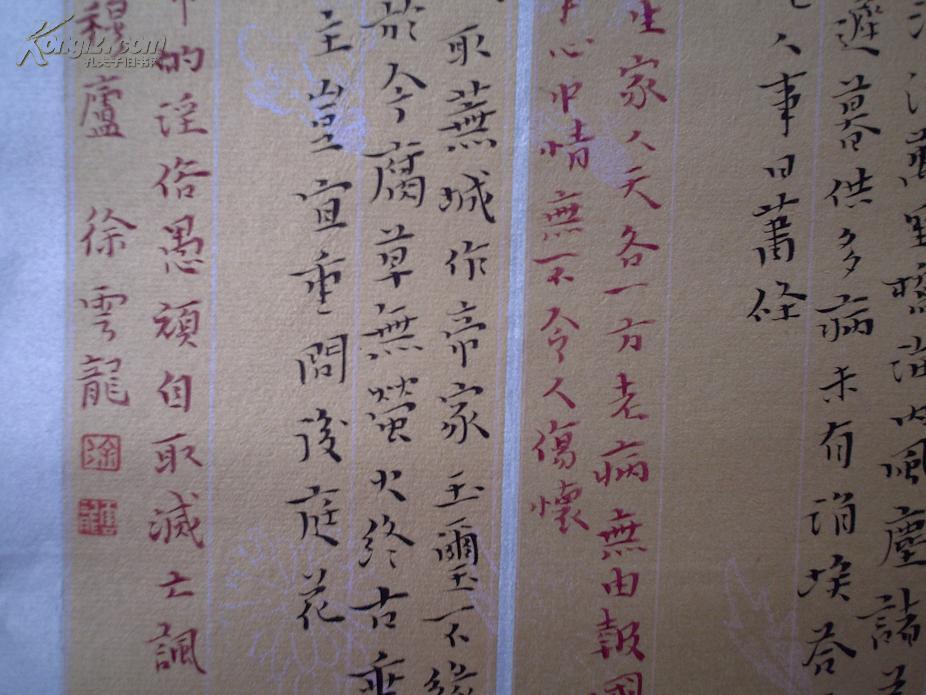 江萬里橋海内風塵諸
遲暮供多病未有涓埃答
人事日蕭條
家人天各一方老病無由報國
心中情無不令人傷懷
取蕪城作帝家玉璽不緣
於今腐草無螢火終古垂
主豈宜重問後庭花
的淫俗愚頑自取滅亡諷
穆廬 徐雲龍
徐
Kongfz.com
孔夫子旧书网